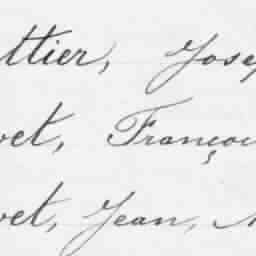 ttier, Josep
vet, Françoi
vet, Jean, M